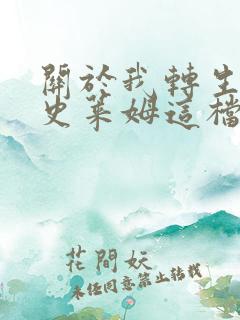 關於我轉生
史萊姆這檔
花間妖
未經同意禁止轉載